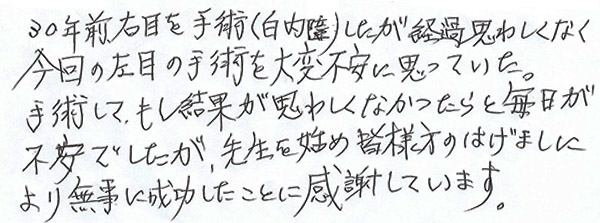 30年前右目を手術(白内障)したが経過思わしくなく
今回の左目の手術を大変不安に思っていた。
手術して、もし結果が思わしくなかったらと毎日が
不安でしたが、先生を始め皆様方のはげましに
より無事に成功したことに感謝しています。